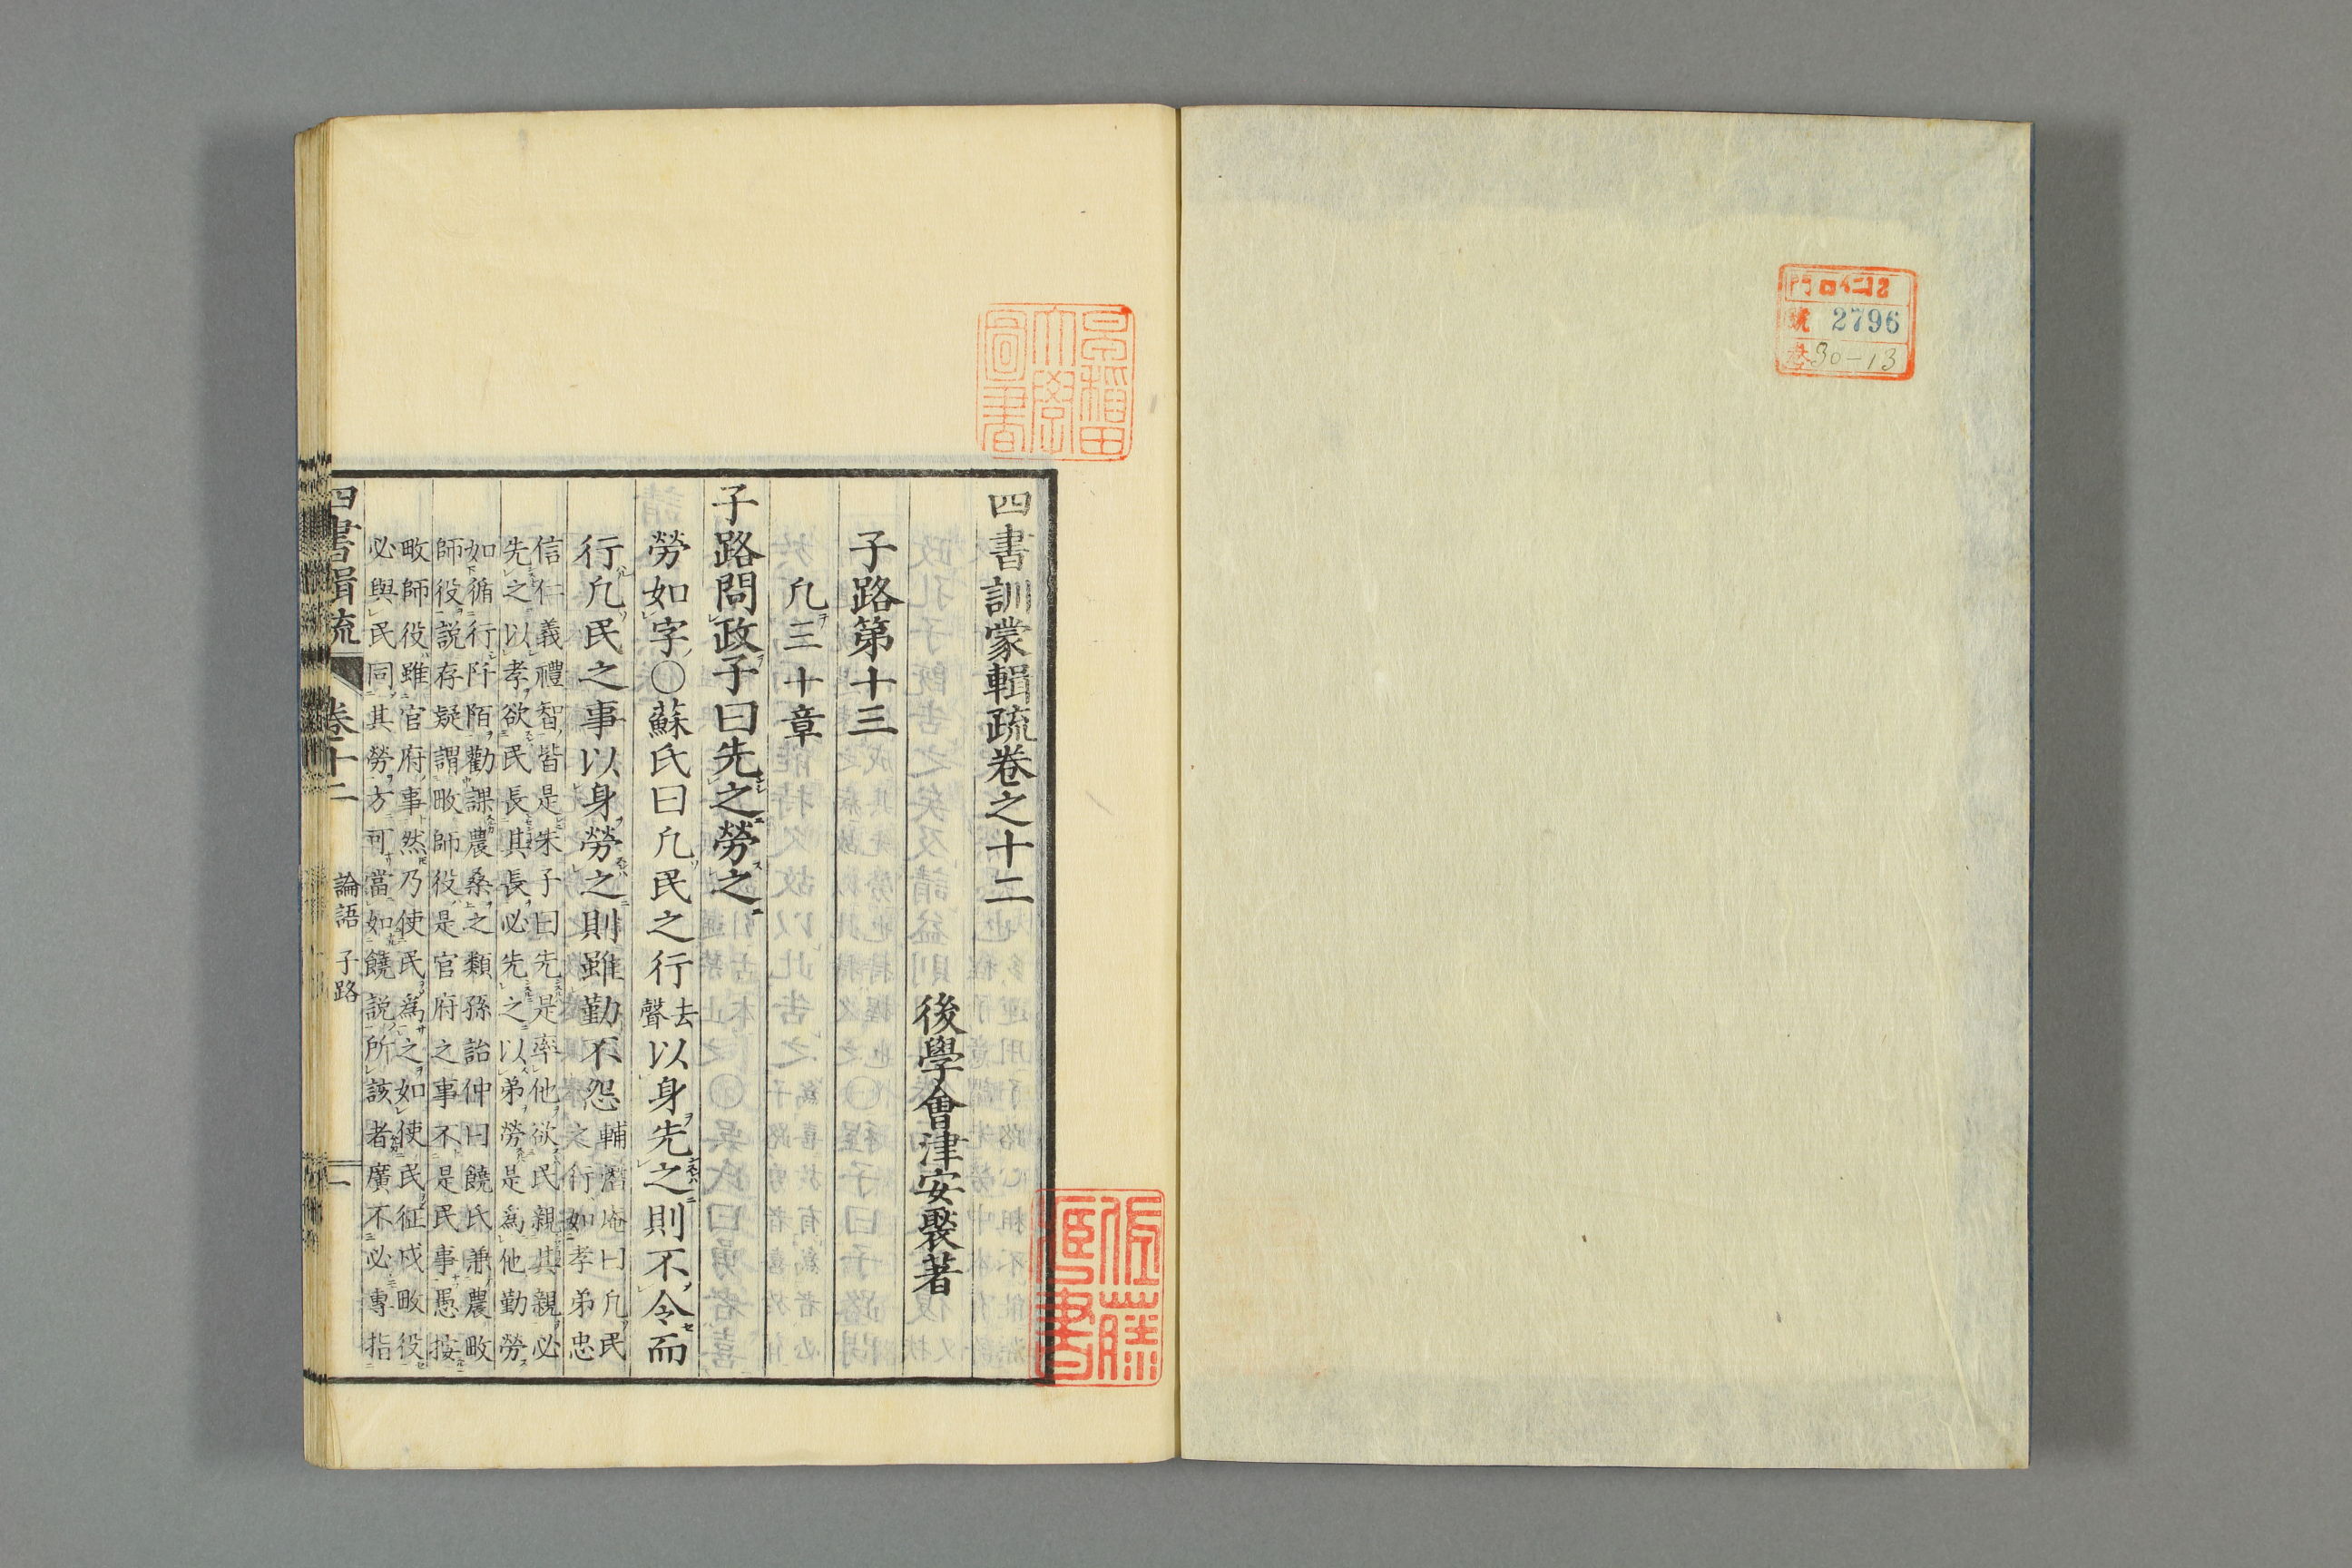 門 口仁12
號 2796
卷 30-13
早稻田大學圖書
四書訓蒙輯疏卷之十二
後學會津安褧著
佐藤
子路第十三
凡三十章
子路問政子曰先之勞之
勞如字〇蘇氏曰凡民之行去聲以身先之則不令而
行凡民之事以身勞之則雖勤不怨輔潛庵曰凡民之行如孝弟忠
信仁義禮智皆是朱子曰先是率他欲民親其親必
先之以孝欲民長其長必先之以弟勞是爲他勤勞
如循行阡陌勸課農桑之類孫詒仲曰饒氏兼農畋
師役説存疑謂畋師役是官府之事不是民事愚按
畋師役雖官府事然乃使民爲之如使民征戍畋役
必與民同其勞方可當如饒説所該者廣不必專指
四書輯疏 卷十二 論語 子路 一